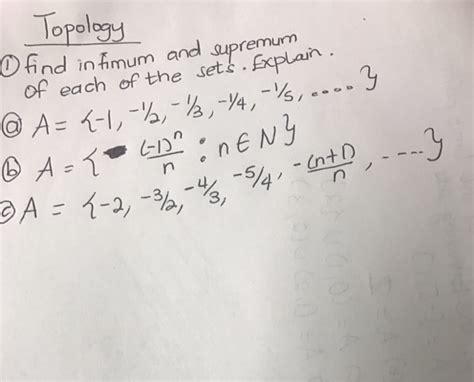 Topology
① find infimum and supremum
of each of the sets. Explain.
ⓐ A = {-1, -1/2, -1/3, -1/4, -1/5, .... }
ⓑ A = { (-1)^n/n : n ∈ N }
ⓒ A = {-2, -3/2, -4/3, -5/4, -(n+1)/n, .... }